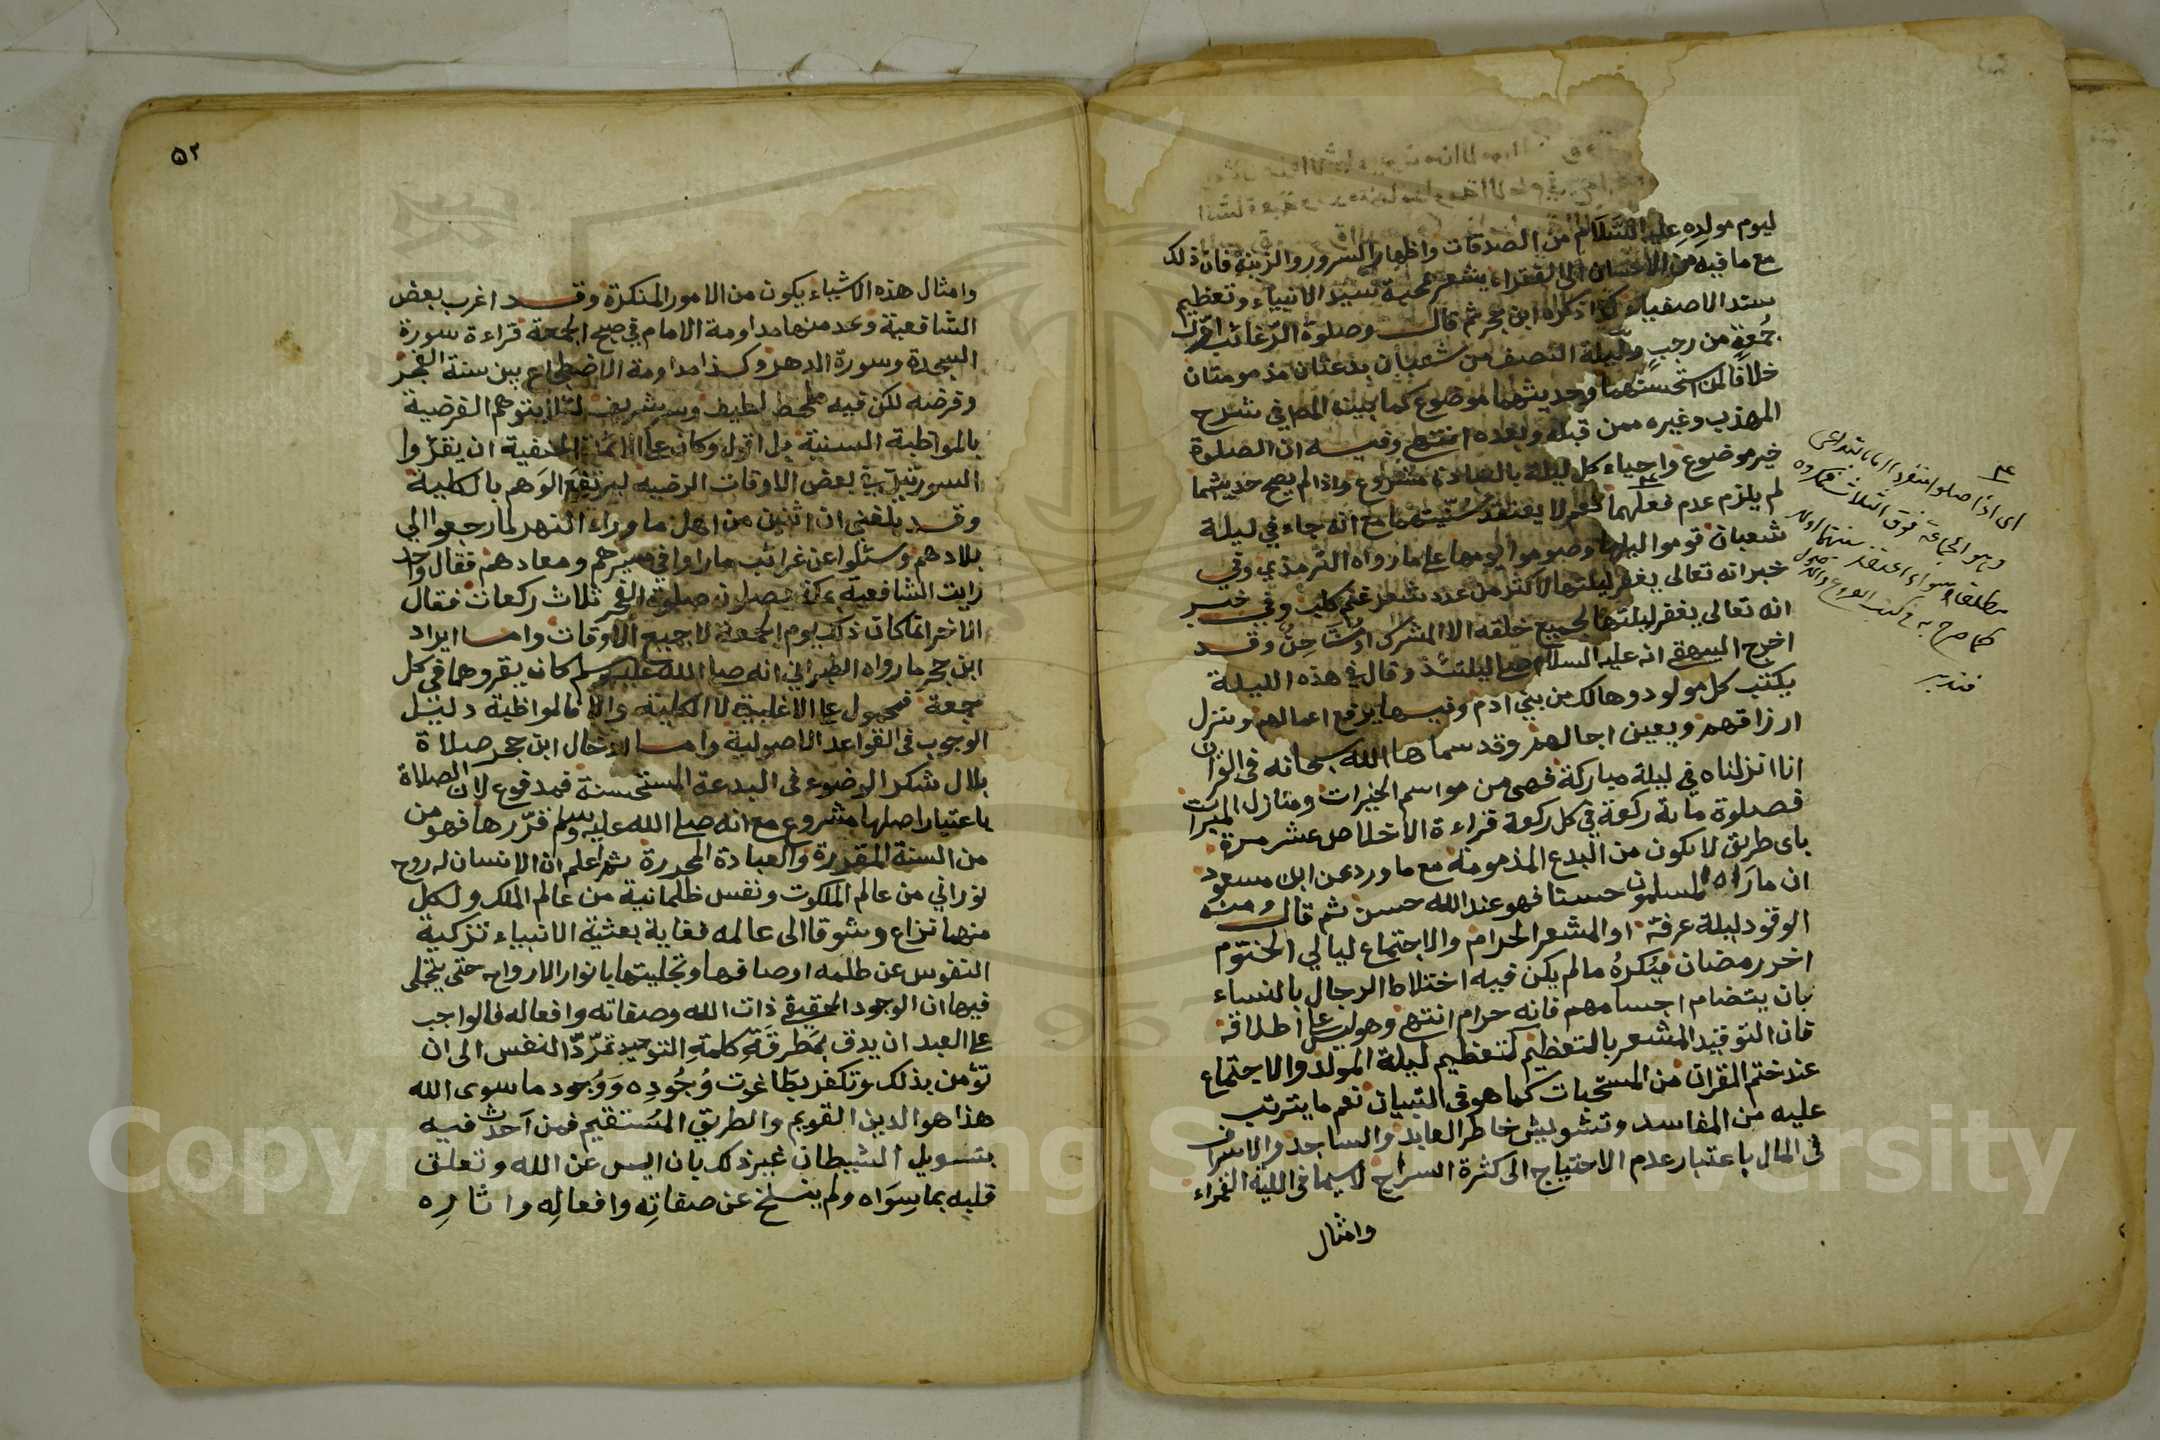 ليوم مولده عليه السلام من الصدقات واظهار السرور والزينة فان ذلك
مع ما فيه من الاحسان الى الفقراء يشعر بمحبة سيد الانبياء وتعظيم
سند الاصفياء كذا ذكره ابن حجر ثم قال وصلوة الرغائب اول
جمعة من رجب وليلة النصف من شعبان بدعتان مذمومتان
خلافا لمن استحسنهما وحديثهما موضوع كما بينه المص في شرح
المهذب وغيره ممن قبله وبعده انتهى وفيه ان الصلوة
خير موضوع واحياء كل ليلة بالعبادة مشروع واذا لم يصح حديثهما
لم يلزم عدم فعلهما نعم لا يعتقد سنيتهما مع انه جاء في ليلة
شعبان قوموا ليلها وصوموا يومها على ما رواه الترمذي وفي
خبر انه تعالى يغفر ليلتها لاكثر من عدد شعر غنم كلب وفي خبر
انه تعالى يغفر ليلتها لجميع خلقه الا المشرك او مشاحن وقد
اخرج البيهقي انه عليه السلام ليلتئذ وقال في هذه الليلة
يكتب كل مولود وهالك من بني ادم وفيها يرفع اعمالهم وينزل
ارزاقهم ويعين اجالهم وقد سماها الله سبحانه في القران
انا انزلناه في ليلة مباركة فهي من مواسم الخيرات ومنازل المبرات
فصلوة ماية ركعة في كل ركعة قراءة الاخلاص عشر مرة
باى طريق لا يكون من البدع المذمومة مع ما ورد عن ابن مسعود
ان ما راه المسلمون حسنا فهو عند الله حسن ثم قال ومنه
الوقود ليلة عرفة او المشعر الحرام والاجتماع ليالي الختوم
اخر رمضان فيكره ما لم يكن فيه اختلاط الرجال بالنساء
بان يتضام اجسامهم فانه حرام انتهى وهو ليس على اطلاقه
فان التوقيد المشعر بالتعظيم لتعظيم ليلة المولد والاجتماع
عند ختم القران من المستحبات كما هو في التبيان نعم ما يترتب
عليه من المفاسد وتشويش خاطر العابد والساجد والاسراف
في المال باعتبار عدم الاحتياج الى كثرة السراج لا سيما في الليلة القمراء
وامثال
اى اذا صلوا منفردا
فتدبر
٥٢
وامثال هذه الاشياء يكون من الامور المنكرة وقد اغرب بعض
الشافعية وعد منها مداومة الامام في صبح الجمعة قراءة سورة
السجدة وسورة الدهر وكذا مداومة الاضطجاع بين سنة الفجر
وفرضه لكن فيه ملحظ لطيف وسر شريف لئلا يتوهم الفرضية
بالمواظبة السنية بل اقول وكان على الائمة الحنفية ان يقرؤا
السورتين في بعض الاوقات المرضية ليرتفع الوهم بالكلية
وقد بلغني ان اثنين من اهل ما وراء النهر لما رجعوا الى
بلادهم وسئلوا عن غرائب ما راوا في سيرهم ومعادهم فقال واحد
رايت الشافعية بمكة يصلون صلوة الفجر ثلاث ركعات فقال
الاخر انما كان ذلك يوم الجمعة لا جميع الاوقات واما ايراد
ابن حجر ما رواه الطبراني انه صلى الله عليه وسلم كان يقروهما في كل
جمعة فمحمول على الاغلبية لا الكلية والا فالمواظبة دليل
الوجوب في القواعد الاصولية واما ادخال ابن حجر صلاة
بلال شكر الوضوء في البدعة المستحسنة فمدفوع لان الصلاة
باعتبار اصلها مشروع مع انه صلى الله عليه وسلم قررها فهو من
من السنة المقررة والعبادة المحررة ثم اعلم ان الانسان له روح
نوراني من عالم الملكوت ونفس ظلمانية من عالم الملك ولكل
منهما نزاع وشوقا الى عالمه فغاية بعثية الانبياء تزكية
النفوس عن ظلمه اوصافها وتحليتها بانوار الارواح حتى يتجلى
فيها ان الوجود الحقيقي ذات الله وصفاته وافعاله فالواجب
على العبد ان يدق بمطرقة كلمة التوحيد تمرد النفس الى ان
تؤمن بذلك وتكفر بطاغوت وجوده ووجود ما سوى الله
هذا هو الدين القويم والطريق المستقيم فمن احدث فيه
بتسويل الشيطان غير ذلك بان ايس عن الله وتعلق
قلبه بما سواه ولم ينسلخ عن صفاته وافعاله واثاره